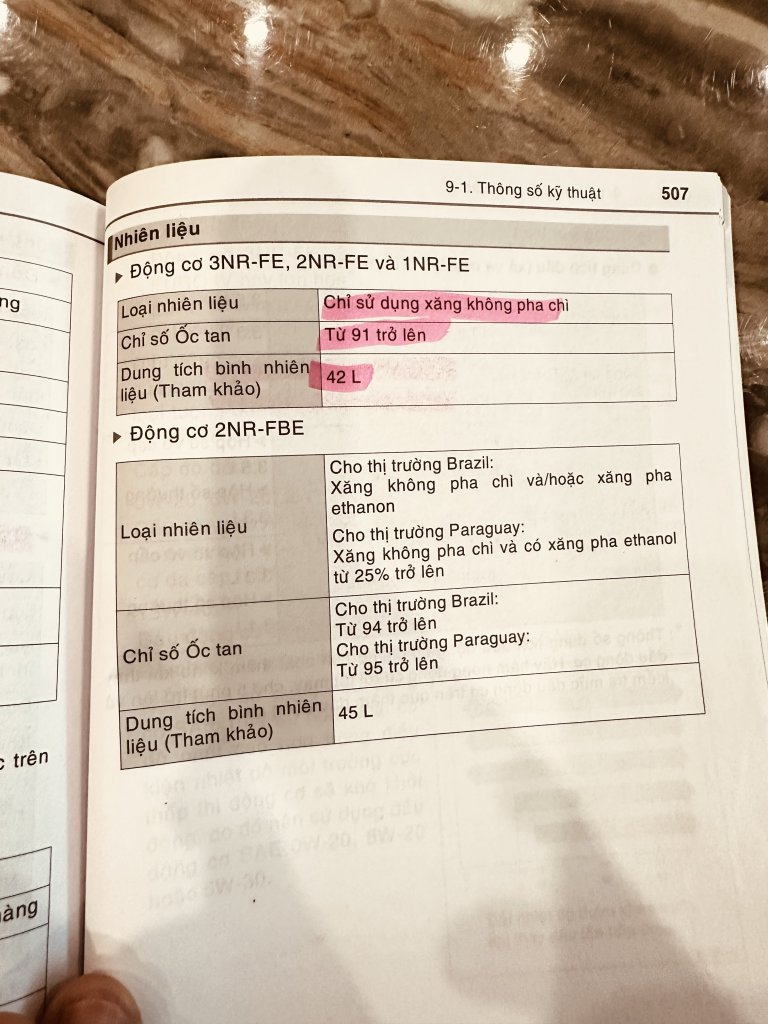 9-1. Thông số kỹ thuật 507
Nhiên liệu
Động cơ 3NR-FE, 2NR-FE và 1NR-FE
Loại nhiên liệu
Chỉ sử dụng xăng không pha chì
Chỉ số Ốc tan
Từ 91 trở lên
Dung tích bình nhiên
liệu (Tham khảo)
42 L
Động cơ 2NR-FBE
Loại nhiên liệu
Cho thị trường Brazil:
Xăng không pha chì và/hoặc xăng pha
ethanon
Cho thị trường Paraguay:
Xăng không pha chì và có xăng pha ethanol
từ 25% trở lên
Chỉ số Ốc tan
Cho thị trường Brazil:
Từ 94 trở lên
Cho thị trường Paraguay:
Từ 95 trở lên
Dung tích bình nhiên
liệu (Tham khảo)
45 L
ng
trên
àng